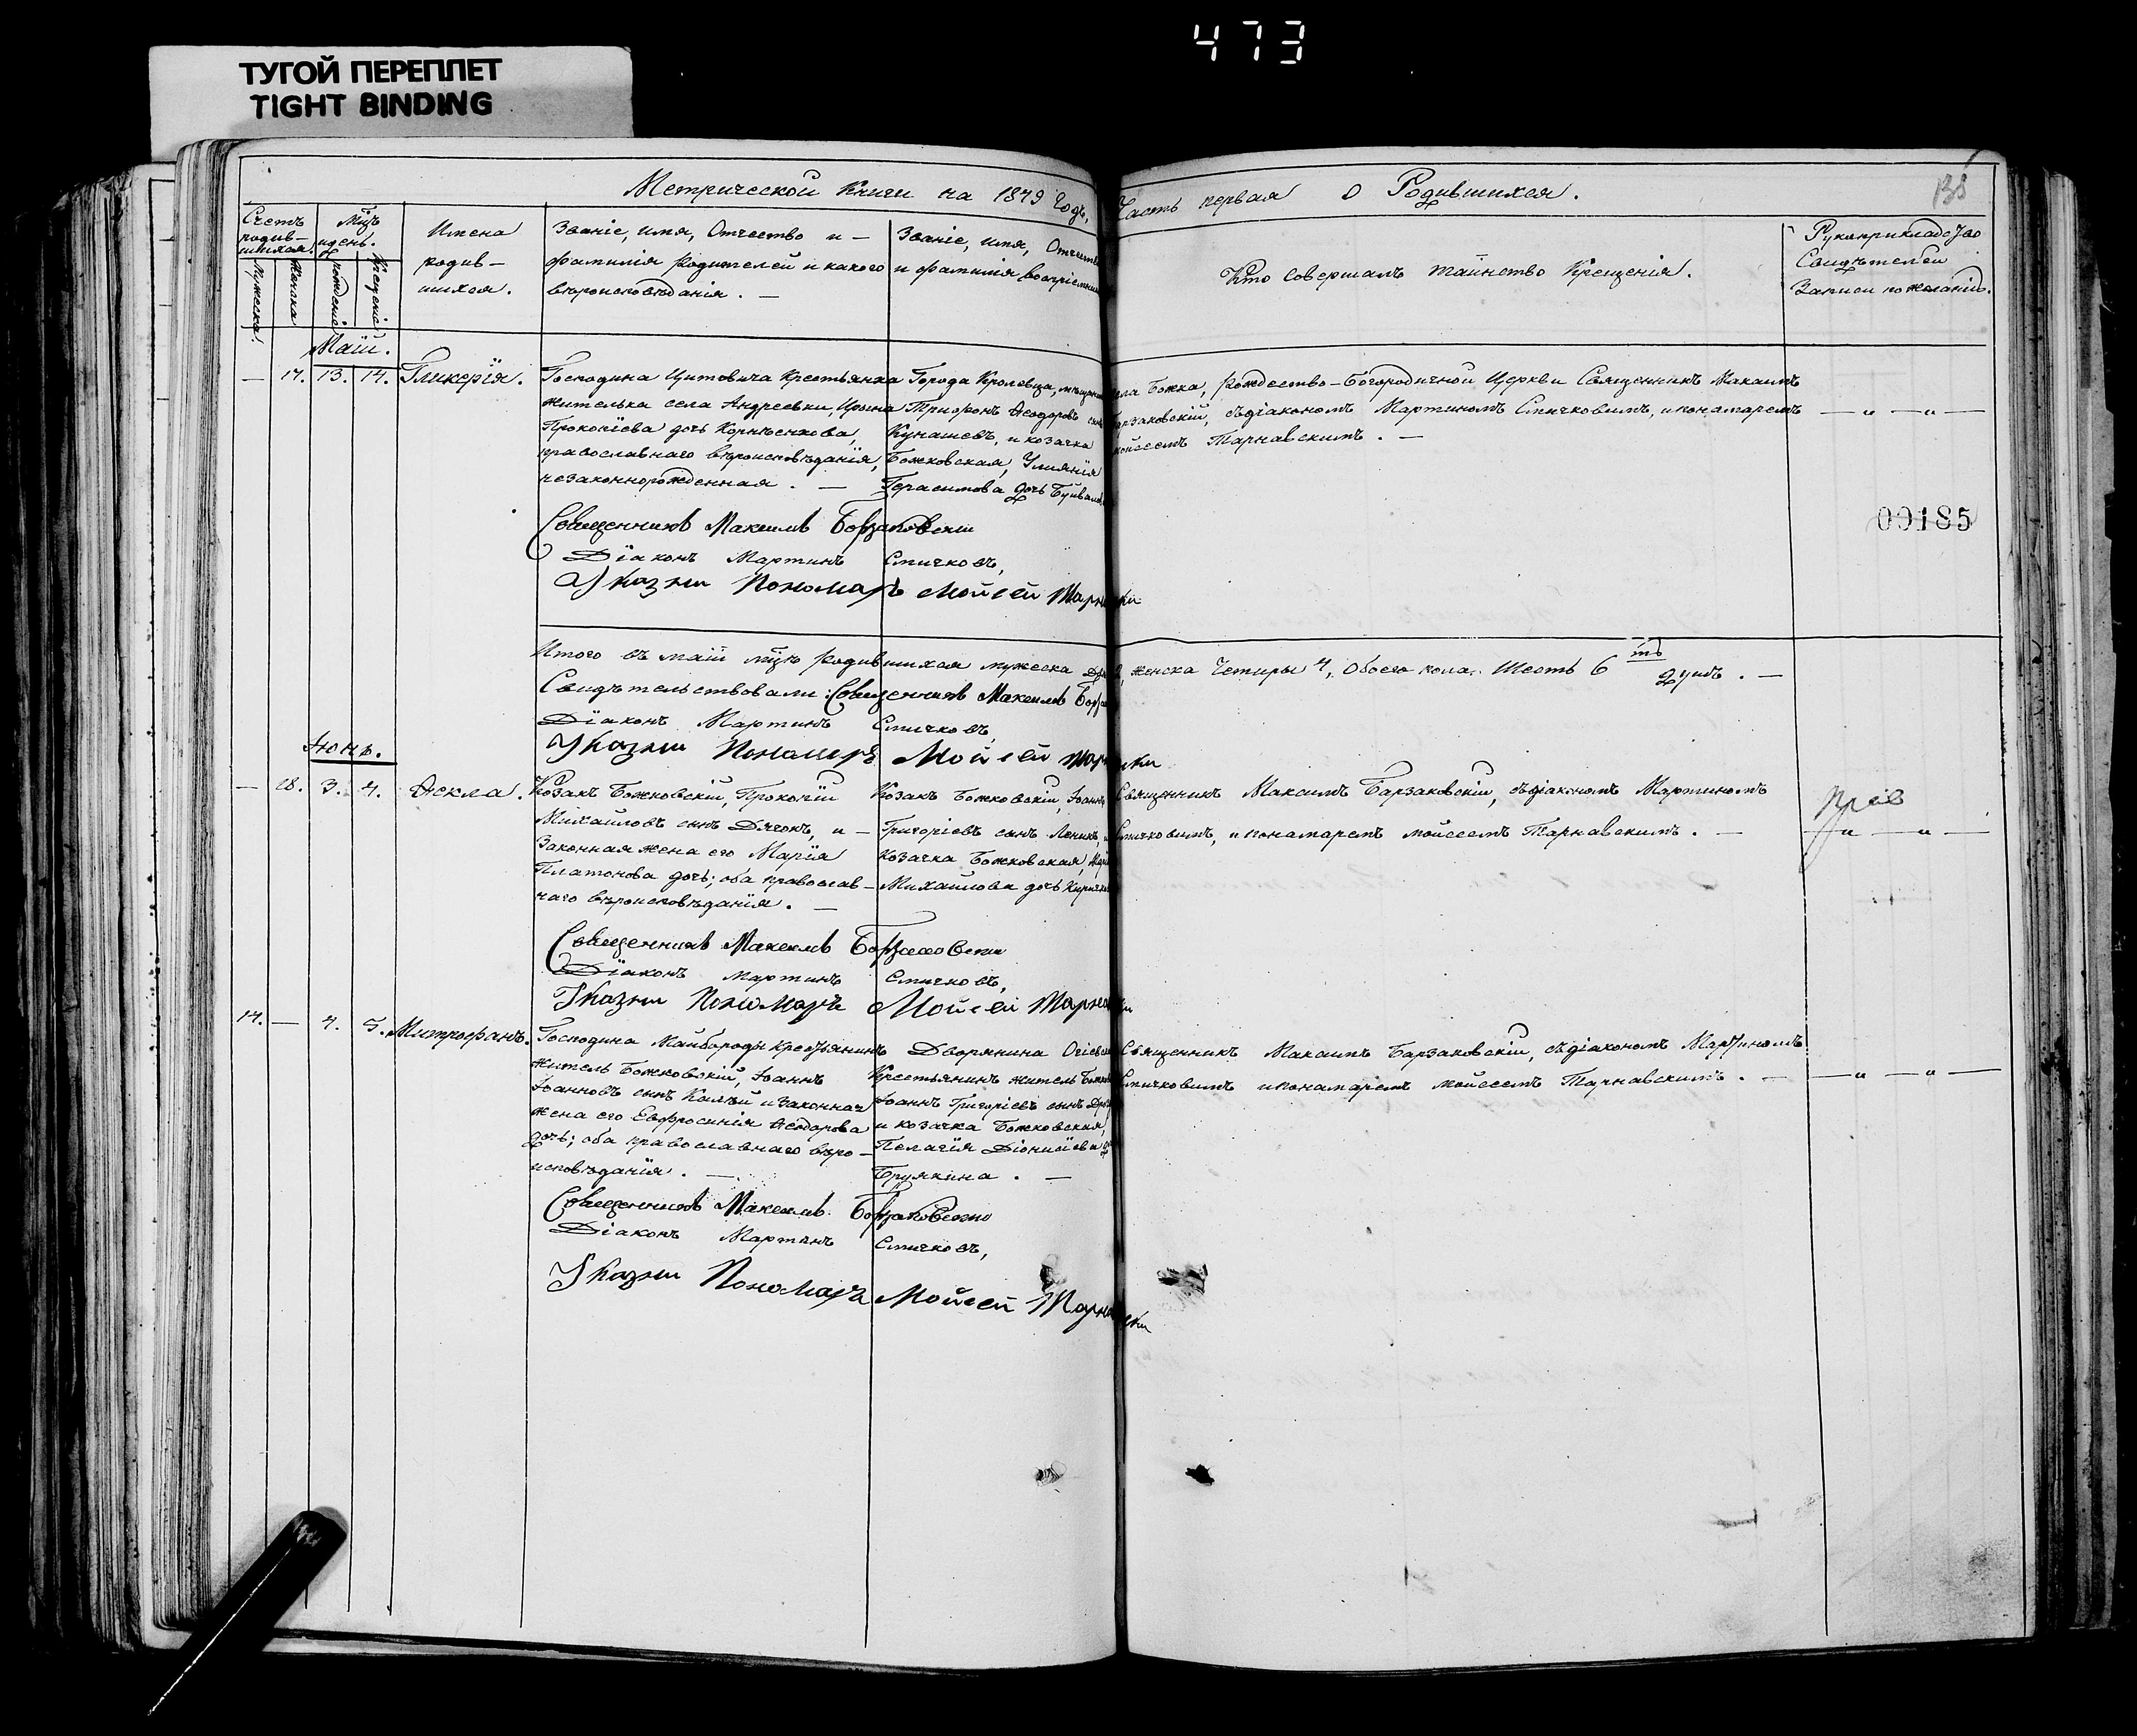 473
ТУГОЙ ПЕРЕПЛЕТ
TIGHT BINDING
Метрической Книги на 1849 Годъ,
Часть первая о Родившихся.
Счетъ родив-шихся.
Мужеска.
Женска
Мцъ идень.
рожденія
Крещенія
Имена
родив-
шихся.
Званіе, имя, Отчество и -
фамилія Родителей и какого
вѣроисповѣданія. -
Званіе, имя,
и фамилія
Кто совершалъ таинство Крещенія.
Рукоприкладство
Свидѣтелей
Записи по желанію.
Маій.
— 17. 13. 14. Гликерія.
Господина Цитовича Крестьянка
жителька села Андреевки, Ирина
Прокопіева дочь Корнѣенкова,
православнаго вѣроисповѣданія,
незаконнорожденная. —
Города Кролевца,
Трифонъ Ѳеодоровъ
Кунашевъ, и козачка
Божковская, Улиянія
Герасимова дочь
Божка, Рождество-Богородичной Церкви Священникъ Максимъ
съдіакономъ Мартиномъ Спичковимъ, и понамаремъ — „ — „ —
Тарнавскимъ. —
00185
Священникъ Максимъ Борзаковскій
Діаконъ Мартинъ Спичковъ,
Указни Пономаръ Мойсей
Итого въ маіи мцѣ родившихся мужеска
женска Четыры 4, Обоего пола. Шесть 6 ть душъ. —
Свидѣтельствовали: Священникъ Максимъ
Діаконъ Мартинъ Спичковъ,
Указни Пономаръ Мойсей
Іюнь.
— 18. 3. 4. Ѳекла.
Козакъ Божковскій, Прокопій
Михайловъ сынъ Дячокъ, и —
Законная жена его Марія
Платонова дочь; оба православ-
наго вѣроисповѣданія. —
Козакъ Божковскій,
Григоріевъ сынъ
Козачка Божковская,
Михайлова дочь
Священникъ Максимъ Барзаковскій, съдіакономъ Мартиномъ
Спичковимъ, и понамаремъ мойсеемъ Тарнавскимъ. —
— „ — „ —
Священникъ Максимъ Борзаковскій
Діаконъ Мартинъ Спичковъ,
Указни Пономаръ Мойсей
14. — 4. 5. Митрофанъ.
Господина Майбороды крестьянинъ
житель Божковскій, Іоаннъ
Іоанновъ сынъ и законная
жена его Евфросинія Ѳеодорова
дочь; оба православнаго вѣро-
исповѣданія. —
Дворянина
Крестьянинъ житель
Іоаннъ Григоріевъ сынъ
и козачка Божковская,
Пелагія Діонисіева
Бруякина. —
Священникъ Максимъ Барзаковскій, съдіакономъ Мартиномъ
Спичковимъ и понамаремъ мойсеемъ Тарнавскимъ. — — „ — „ —
Священникъ Максимъ Борзаковскій
Діаконъ Мартинъ Спичковъ,
Указни Пономаръ Мойсей